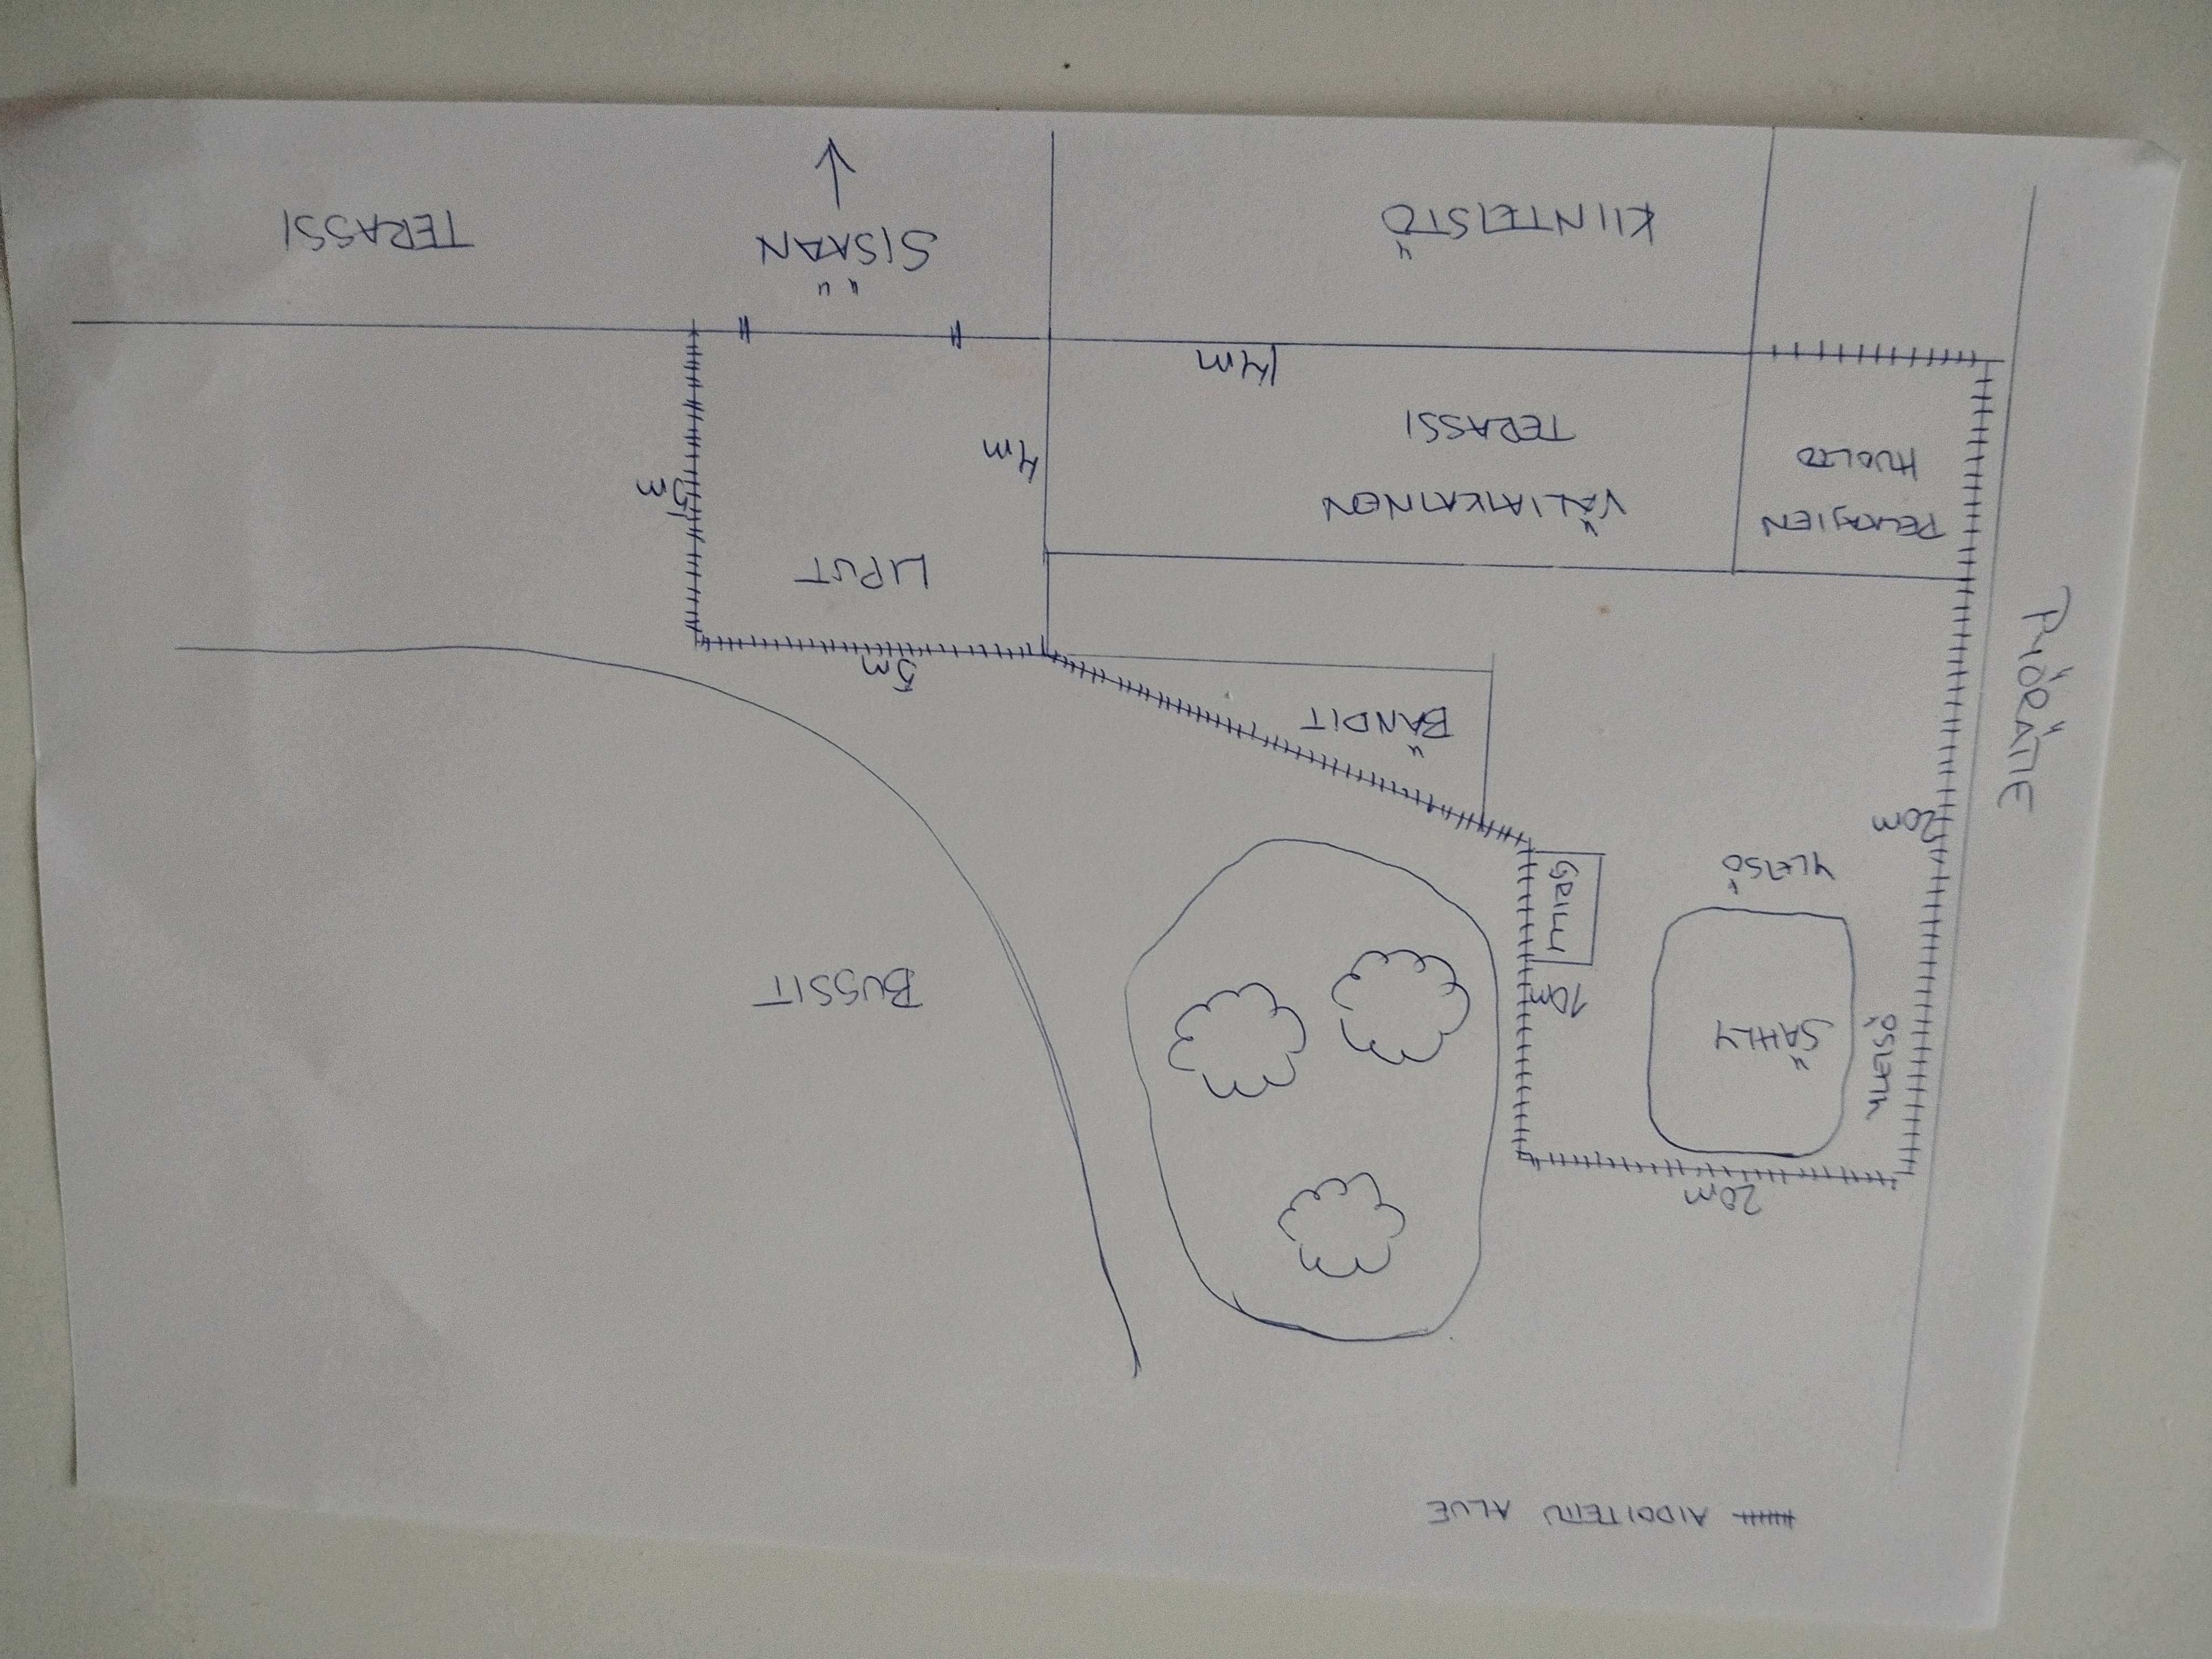 AIDOITETTU ALUE
20m
BUSSIT
SÄHLY
YLEISÖ
10m
YLEISÖ
20m
PYÖRÄTIE
BÄNDIT
5m
LIPUT
PELAAJIEN
HUOLTO
VÄLIAIKAINEN
TERASSI
4m
5m
14m
KIINTEISTÖ
SISÄÄN
TERASSI